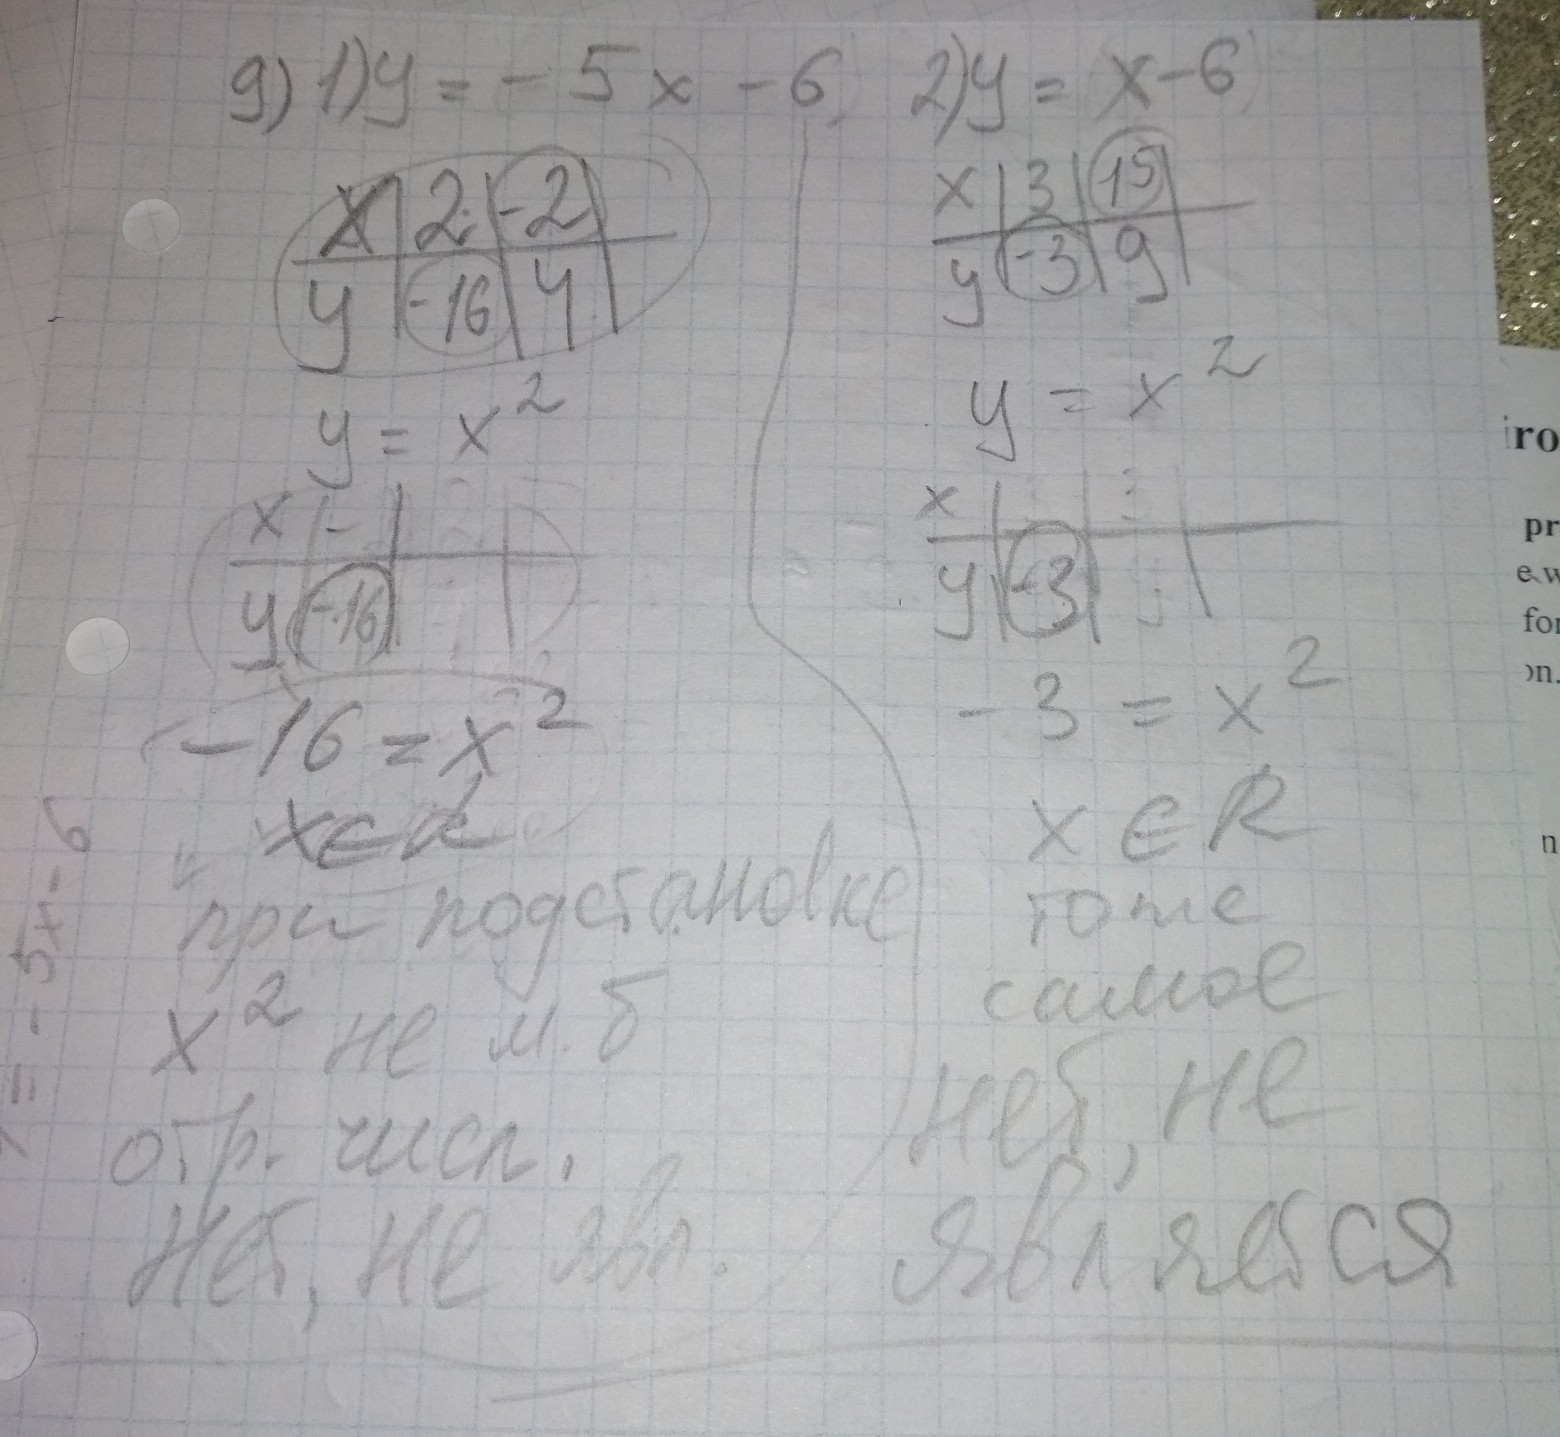 9) 1) y = - 5x - 6
x | 2 | -2 |
y | -16 | 4 |
y = x²
x | - |
y | -16 |
-16 = x²
при подстановке
x² не м. б
отр. числ.
нет, не явл.
2) y = x - 6
x | 3 | 15 |
y | -3 | 9 |
y = x²
x |
y | -3 |
- 3 = x²
x ∈ R
тоже
самое
нет, не
является
= - 5x - 6
iro
pr
e w
for
on.
n